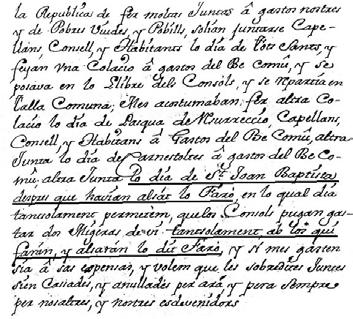 la Republica de fer moltes Juntas â gastos nostres
y de Pobres Viudes, y Pobills, solian juntarse Cape-
llans, Consell, y Habitants lo dia de tots Sants, y
feyan vna Colacio â gastos del Be Comú, y se
posava en lo Llibre dels Consols, y se Npartia en
Talla Comuna; Mes acustumaban fer altra Co-
lacio lo dia de Pasqua de Nsurreccio, Capellans,
Consell, y Habitans â Gastos del Be Comú, altra
Junta lo dia de Carnestoltes â gastos del Be Co-
mú, altra Junta lo dia de St. Joan Baptista
despues que havian alsar lo Faro, en lo qual dia
tansolament permitem, quels Consols pugan gas-
tar dos Migeras de vi tansolament ab los qui
faràn, y alsaràn lo dit Faro, y si mes gasten
sia â sas expensas, y volem que les sobredites Juntes
sien Casades, y anullades per ara, y pera sempre
per nosaltres, y nostres esdevenidors